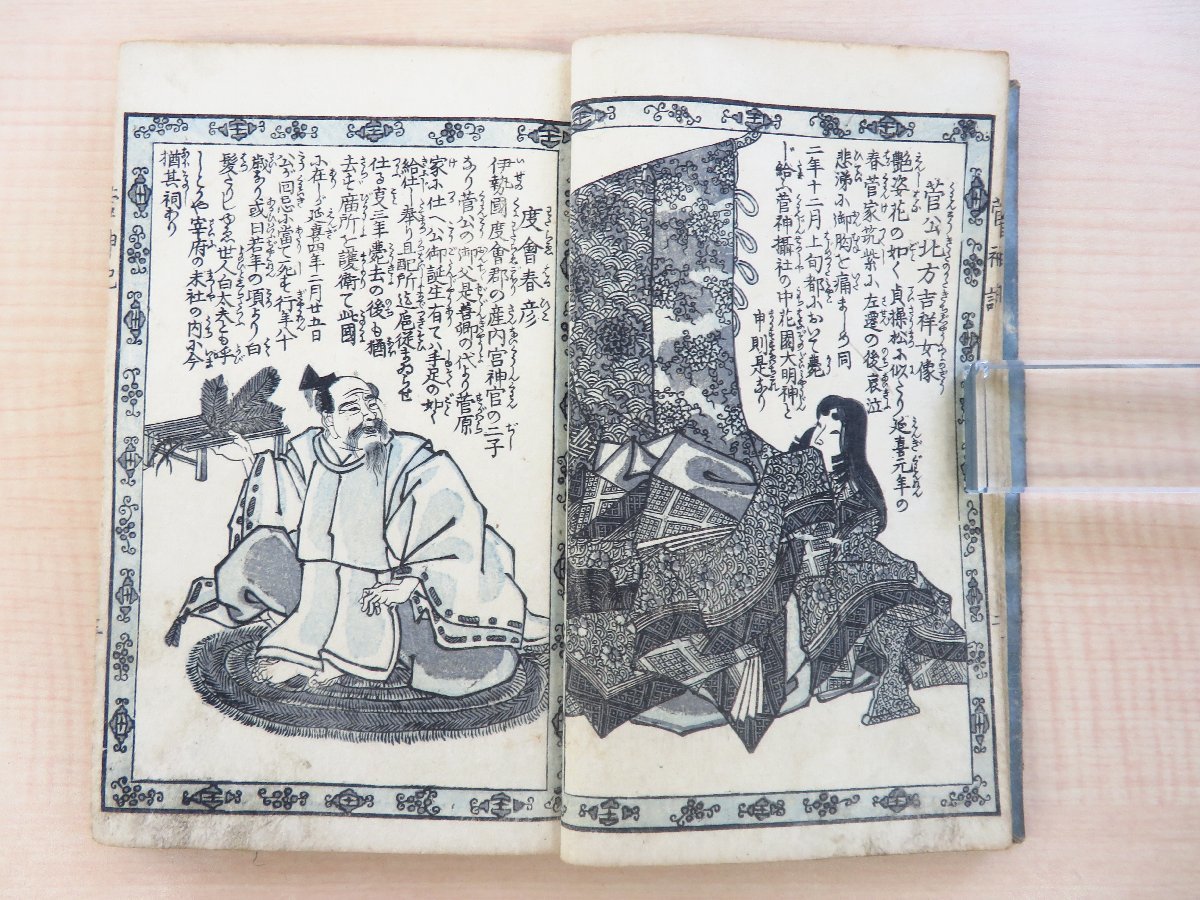 菅公北方吉祥女像
艶姿花の如く貞操松に似たり延喜元年の
春菅家筑紫に左遷の後哀泣
悲涕に御胸を痛ましめ同
二年十二月上旬都において薨
じ給ふ菅神攝社の中花園大明神と
申則是なり
度會春彦
伊勢國度會郡の産内宮神官の二子
なり菅公の御父是善卿の代より菅原
家に仕へ公御誕生有て手足の如く
給仕し奉り且配所迄扈從まゐらせ
仕る支三年薨去の後も猶
去らず廟所を護衛て此國
に在しが延喜四年二月廿五日
公が同忌に當て死す行年八十
歳なり或曰若年の項より白
髪なりしゆゑ世人白太夫とも呼
しとかや宰府の末社の内に今
猶其祠あり